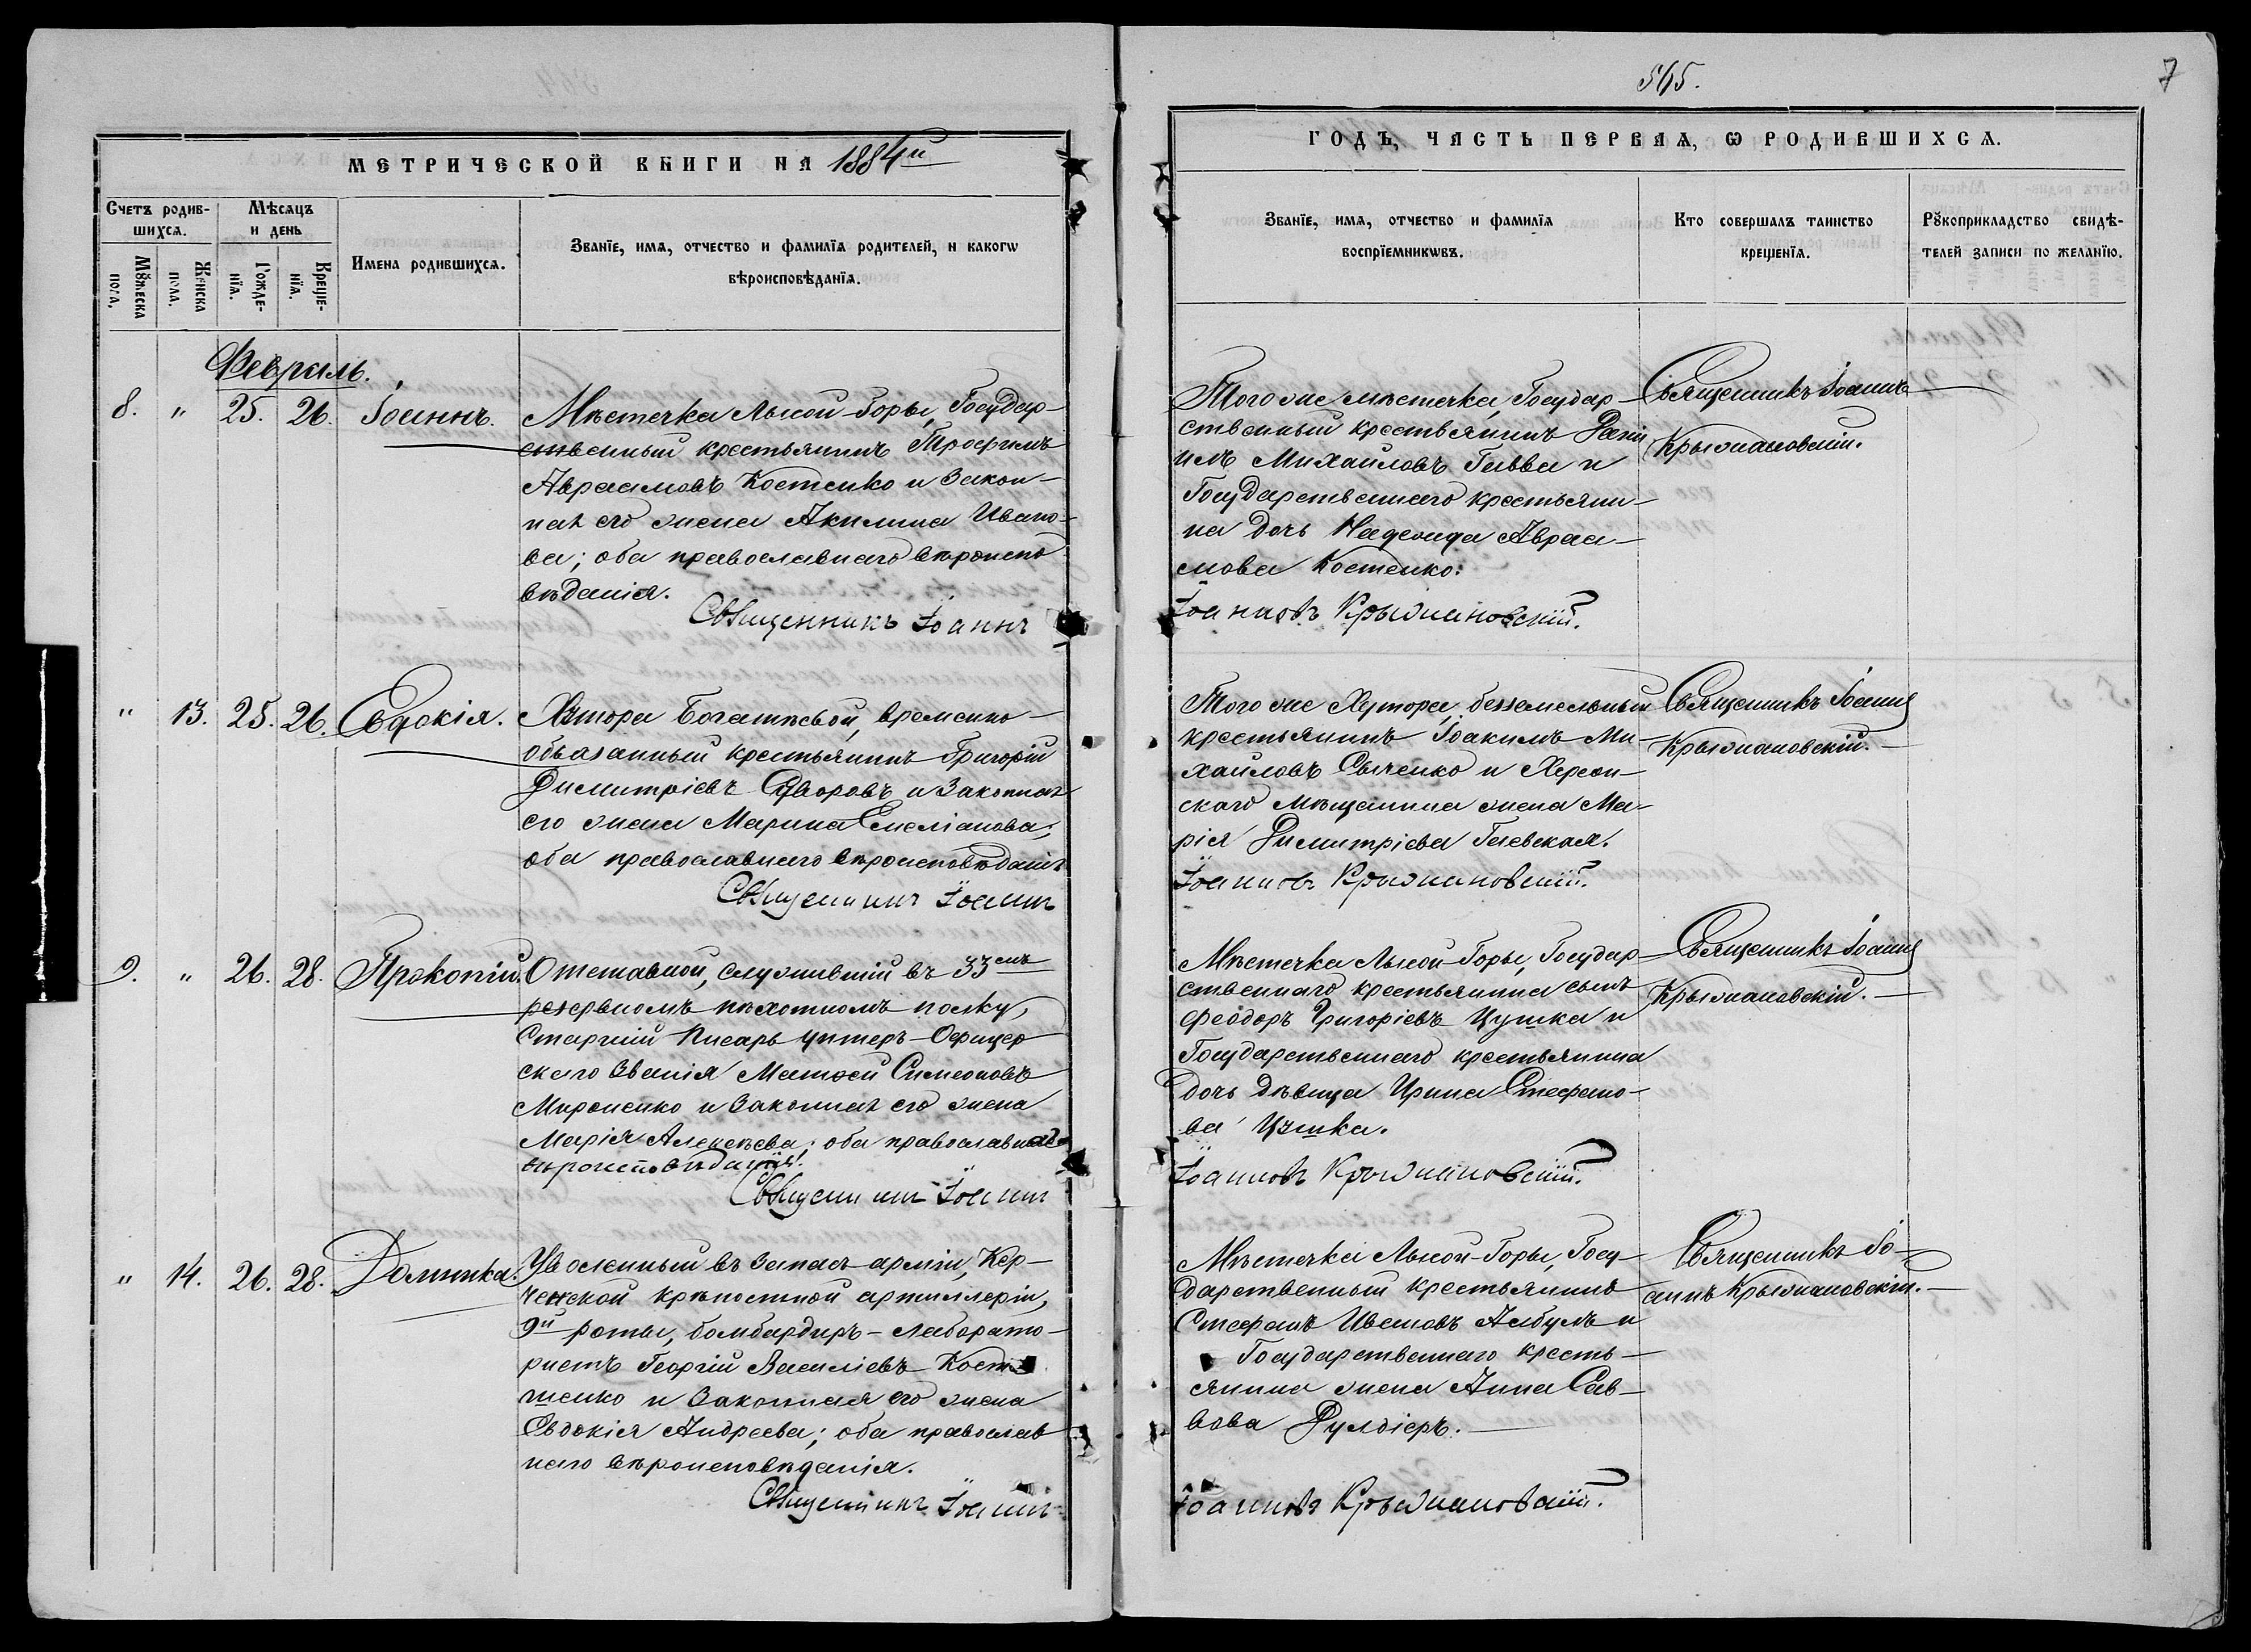 565.
7
МЕТРИЧЕСКОЙ КНИГИ НА 1884й
ГОДЪ, ЧАСТЬ ПЕРВАѦ, Ѡ РОДИВШИХСѦ.
Счетъ родив-
шихсѧ.
Мꙋжеска
пола,
Женска
пола.
Мѣсѧцъ
и день
Рожде-
нїѧ.
Креще-
нїѧ.
Имена родившихсѧ.
Званїе, имѧ, отчество и фамилїѧ родителей, и какогѡ
вѣроисповѣданїѧ.
Званїе, имѧ, отчество и фамилїѧ
воспрїемникѡвъ.
Кто совершалъ таинство
крещенїѧ.
Рꙋкоприкладство свидѣ-
телей записи по желанїю.
Февраль.
8. " 25. 26. Іоаннъ.
Мѣстечка Лысой-Горы, Государ-
ственный крестьянинъ Трофимъ
Авраамовъ Костенко и закон-
ная его жена Акилина Ивано-
ва; оба православнаго вѣроиспо-
вѣданія.
Священникъ Іоаннъ
Того же мѣстечка, Государ-
ственный крестьянинъ
Михайловъ Гавва и
Государственнаго крестьяни-
на дочь Надежда Авраа-
мова Костенко.
Іоанновъ Крыжановскій.
Священникъ Іоаннъ
Крыжановскій.
" 13. 25. 26. Евдокія.
Хутора Богатъевой, временно-
обязанный крестьянинъ Григорій
Димитріевъ и законная
его жена Марина Емеліанова;
оба православнаго вѣроисповѣданія
Священникъ Іоаннъ
Того же Хутора, безземельный
крестьянинъ Іоакимъ Ми-
хайловъ Сыченко и Херсон-
скаго мѣщанина жена Ма-
рія Димитріева Гаевская.
Іоанновъ Крыжановскій.
Священникъ Іоаннъ
Крыжановскій.
9. " 26. 28. Прокопій.
Отставной, служившій въ 33емъ
резервномъ пѣхотномъ полку,
Старшій Писарь унтеръ-Офицер
скаго званія Матѳей Симеоновъ
Мироненко и законная его жена
Марія Алексѣева; оба православнаго
вѣроисповѣданія.
Священникъ Іоаннъ
Мѣстечка Лысой-Горы, Государ-
ственнаго крестьянина сынъ
Феодоръ Григоріевъ Цушка и
Государственнаго крестьянина
дочь дѣвица Ирина Стефано-
ва Цушка.
Іоанновъ Крыжановскій.
Священникъ Іоаннъ
Крыжановскій.
" 14. 26. 28. Домника.
Уволенный въ запасъ арміи, Кер-
ченской крѣпостной артиллеріи,
9й роты, бомбардиръ-лаборато-
ристъ Георгій Василіевъ Кост
шенко и законная его жена
Евдокія Андреева; оба православ
наго вѣроисповѣданія.
Священникъ Іоаннъ
Мѣстечка Лысой-Горы, Госу-
дарственный крестьянинъ
Стефанъ Ивановъ Албулъ и
Государственнаго кресть-
янина жена Анна Сав-
вова Дулдіеръ.
Іоанновъ Крыжановскій.
Священникъ Іо-
аннъ Крыжановскій.